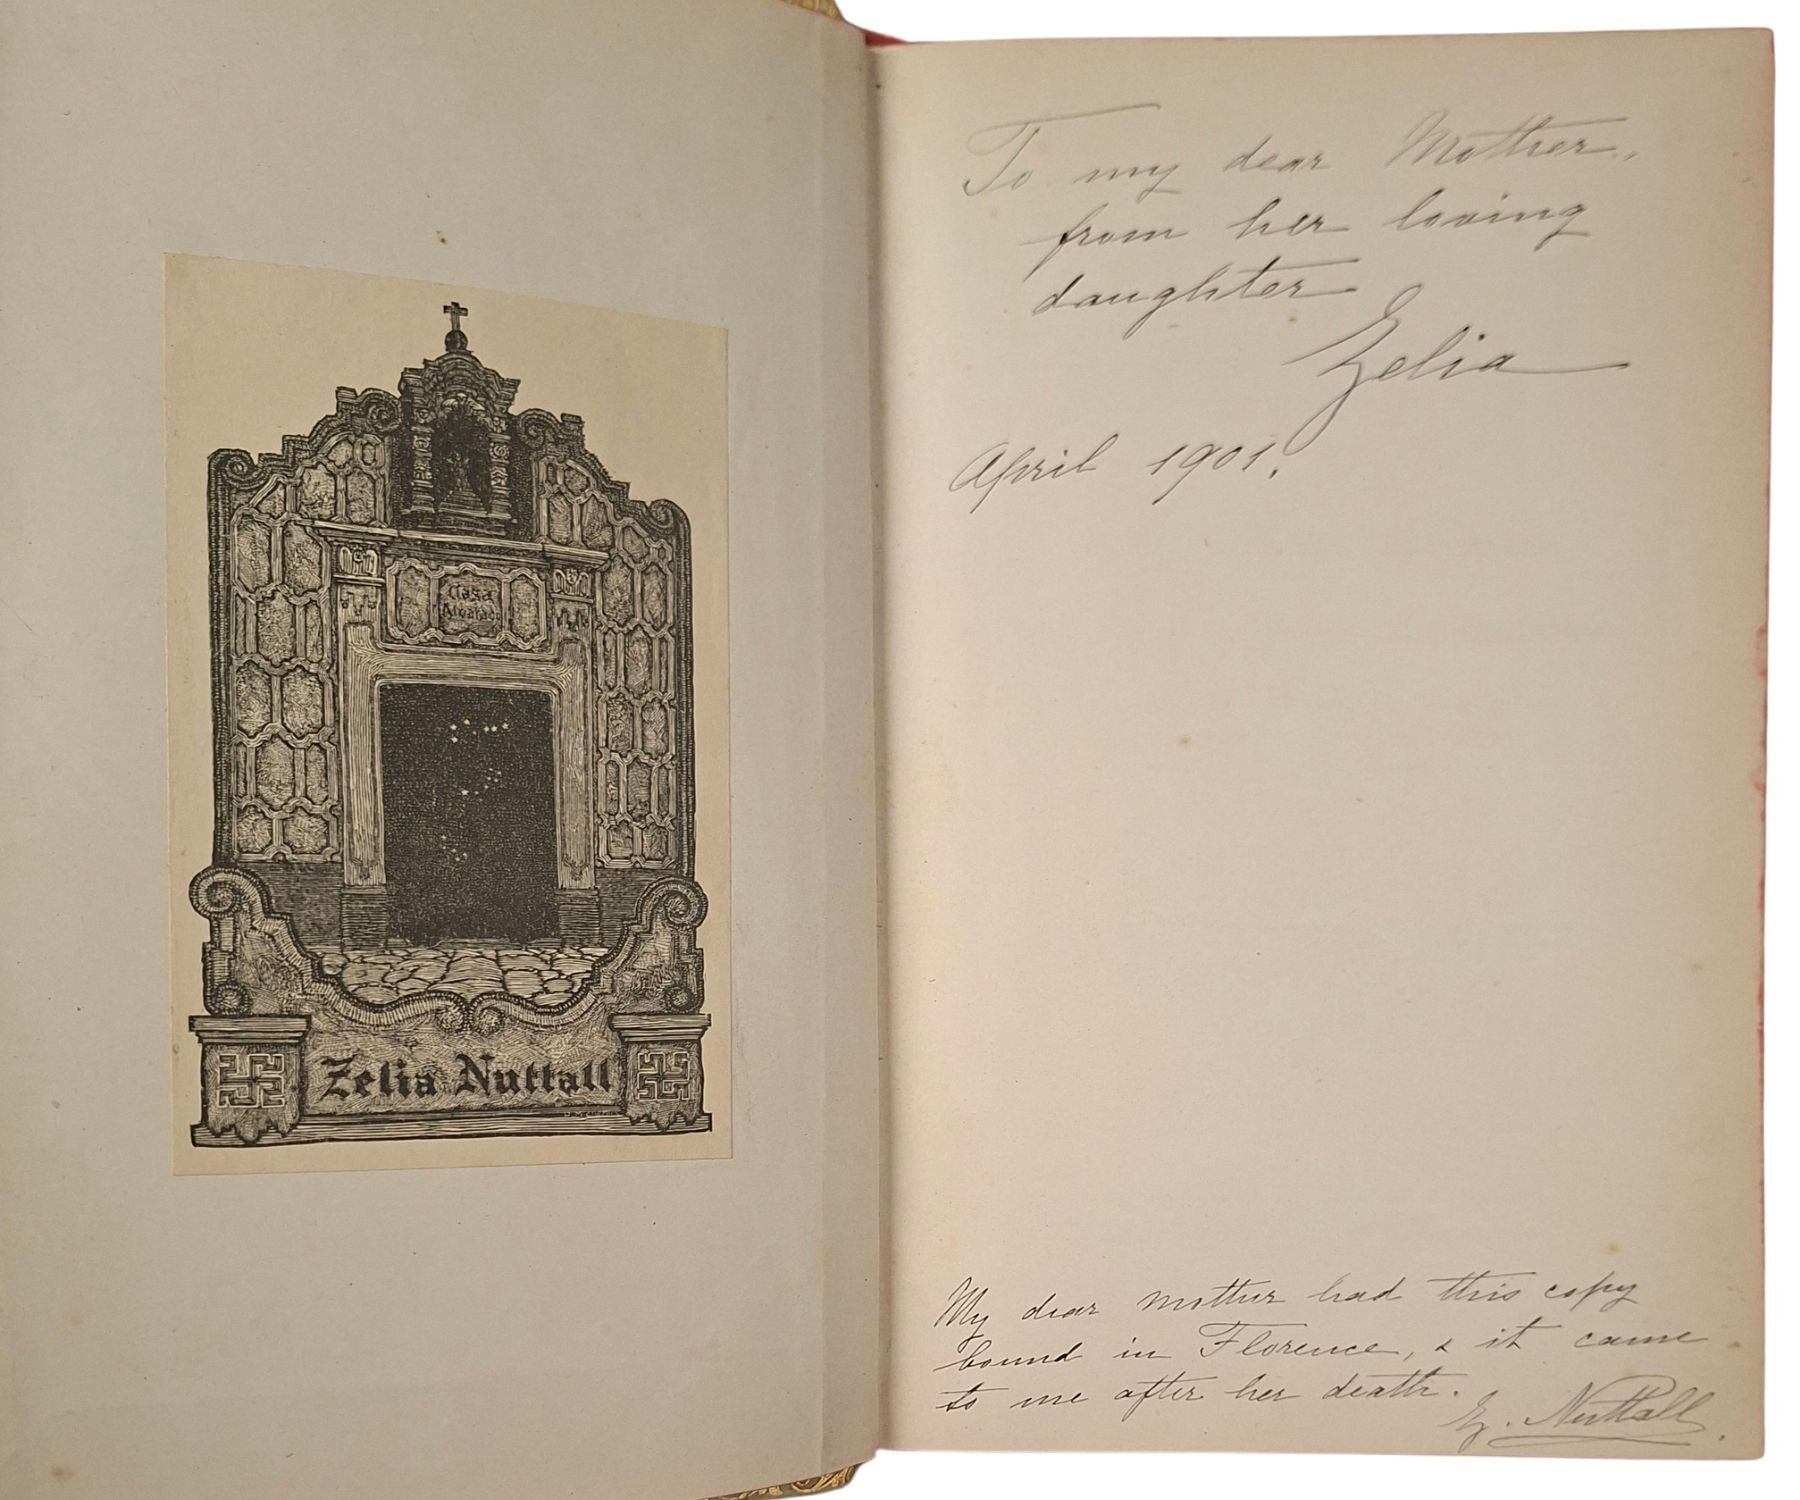 Casa
Alvarado
Zelia Nuttall
To my dear Mother,
from her loving
daughter
Zelia
April 1901.
My dear mother had this copy
bound in Florence, & it came
to me after her death.
Z. Nuttall.